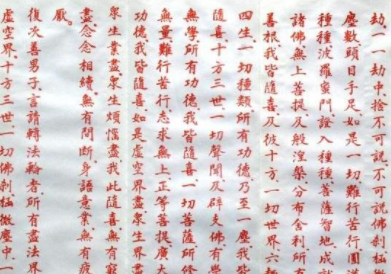 劫一一劫中捨不可說不可說佛剎極
塵數頭目手足如是一切難行苦行圓滿
種種波羅蜜門證入種種菩薩智地成就
諸佛無上菩提及般涅槃分布舍利所
善根我皆隨喜及彼十方一切世界六趣
四生一切種類所有功德乃至一塵我皆
隨喜十方三世一切聲聞及辟支佛有學
無學所有功德我皆隨喜一切菩薩所修
無量難行苦行志求無上正等菩提廣大
功德我皆隨喜如是虛空界盡衆生界盡
衆生業盡衆生煩惱盡我此隨喜無有窮
盡念念相續無有間斷身語意業無有疲
厭
復次善男子言請轉法輪者所有盡法界
虛空界十方三世一切佛剎極微塵中一